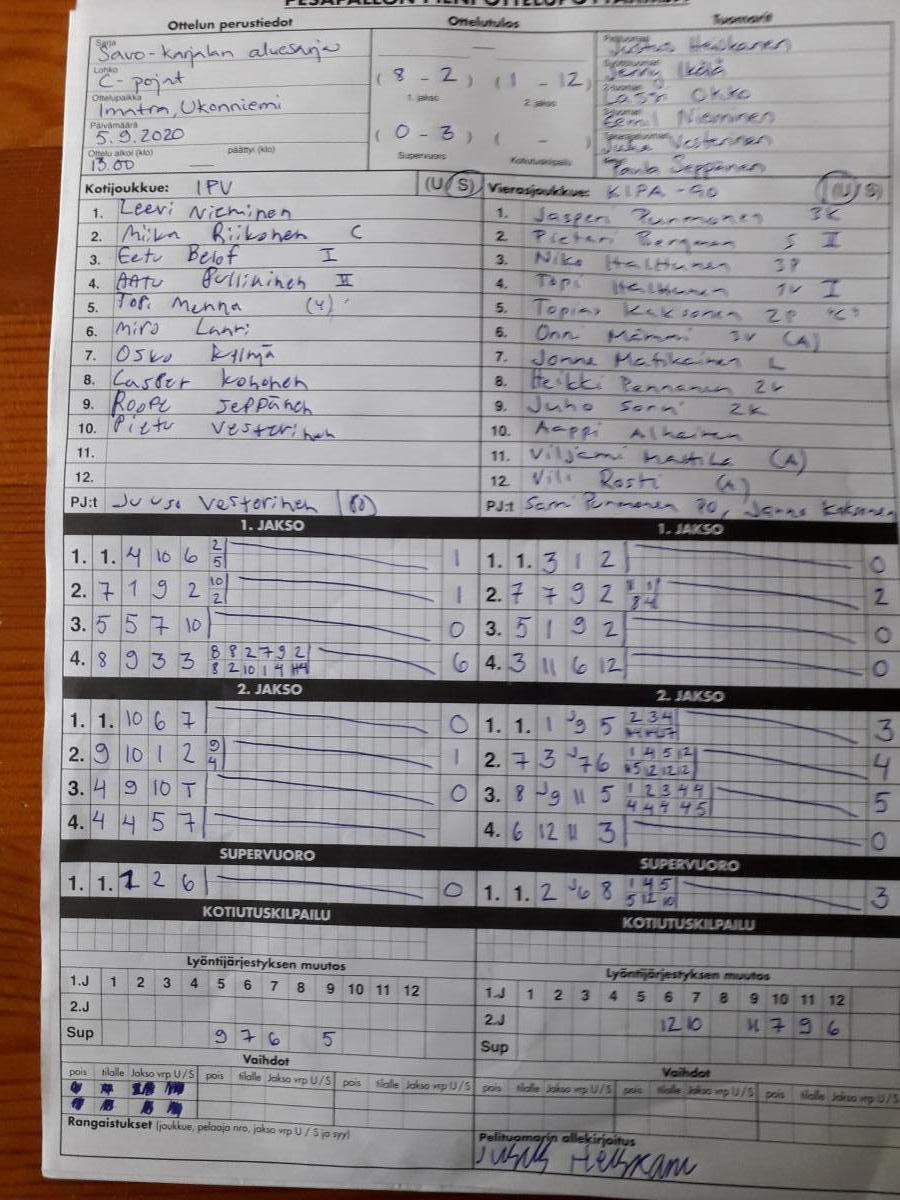 PESÄPALLON PIENI OTTELUPÖYTÄKIRJA
Ottelun perustiedot
Ottelutulos
Tuomarit
Sarja
Savo-karjalan aluesarja
Lohko
C-pojat
Ottelupaikka
Imatra, Ukonniemi
Päivämäärä
5.9.2020
Ottelu alkoi (klo) päättyi (klo)
13.00 —
(8 - 2) (1 - 12)
1. jakso 2. jakso
(0 - 3) ( - )
Supervuoro Kotiutuskilpailu
Justus Heiskanen
Jenny Ikälä
Lassi Okko
Eemil Nieminen
Juha Vesterinen
Paula Seppänen
Kotijoukkue: IPV (U/S)
1. Leevi Nieminen
2. Miika Riikonen C
3. Eetu Belof I
4. Aatu Pulliainen II
5. Topi Menna (4)
6. Miro Lauri
7. Osku Kylmä
8. Casper Kohonen
9. Roope Seppänen
10. Pietu Vesterinen
11.
12.
PJ:t Juuso Vesterinen
Vierasjoukkue: KIPA-90 (U/S)
1. Jasperi Punmonen 3K
2. Pietari Bergman 5 II
3. Niko Halttunen 3P
4. Topi Halttunen 1V I
5. Topias Kaksonen 2P "C"
6. Onni Mämmi 3V (A)
7. Jonne Matikainen L
8. Heikki Pennanen 2V
9. Juho Sorri 2K
10. Aappi Alhainen
11. Viljami Mattila (A)
12. Vili Rosti (A)
PJ:t Sami Punmonen PO, Janne Kaksonen
1. JAKSO
1. 1. 4 10 6 2 1
5
2. 7 1 9 2 10 1
2
3. 5 5 7 10 0
4. 8 9 3 3 8 8 2 7 9 2 6
8 2 10 1 4 H4
1. JAKSO
1. 1. 3 1 2 0
2. 7 7 9 2 2
8 4
3. 5 1 9 2 0
4. 3 11 6 12 0
2. JAKSO
1. 1. 10 6 7 0
2. 9 10 1 2 9 1
4
3. 4 9 10 T 0
4. 4 4 5 7
2. JAKSO
1. 1. 1 J9 5 2 3 4 3
2. 7 3 J7 6 1 4 5 12 4
5 12 12 12
3. 8 J9 11 5 1 2 3 4 4 5
4 4 4 4 5
4. 6 12 11 3 0
SUPERVUORO
1. 1. 1 2 6 0
SUPERVUORO
1. 1. 2 J6 8 1 4 5 3
5 12 10
KOTIUTUSKILPAILU
KOTIUTUSKILPAILU
Lyöntijärjestyksen muutos
1.J 1 2 3 4 5 6 7 8 9 10 11 12
2.J
Sup 9 7 6 5
Lyöntijärjestyksen muutos
1.J 1 2 3 4 5 6 7 8 9 10 11 12
2.J 12 10 11 7 9 6
Sup
Vaihdot
pois tilalle Jakso vrp U/S pois tilalle Jakso vrp U/S pois tilalle Jakso vrp U/S
Vaihdot
pois tilalle Jakso vrp U/S pois tilalle Jakso vrp U/S pois tilalle Jakso vrp U/S
Rangaistukset (joukkue, pelaaja nro, jakso vrp U / S ja syy)
Pelituomarin allekirjoitus
Justus Heiskanen